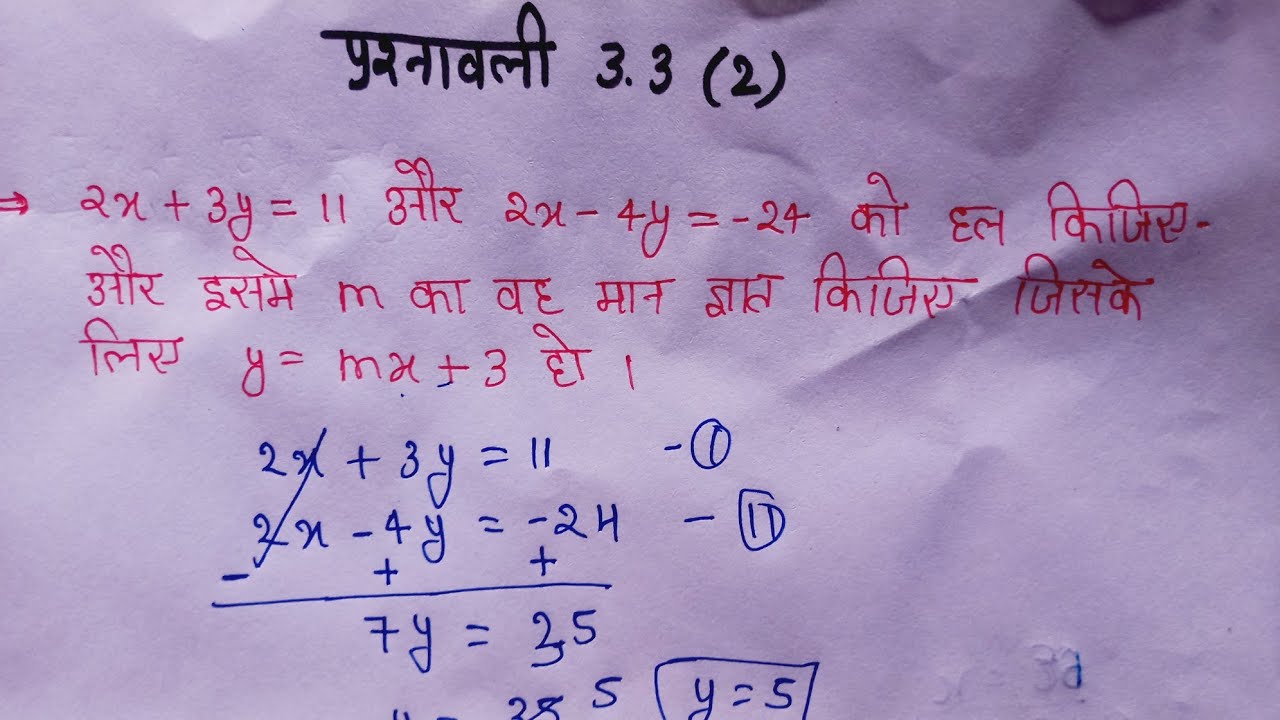 प्रश्नावली 3.3 (2)
⇒ 2x + 3y = 11 और 2x - 4y = -24 को हल किजिए-
और इसमे m का वह मान ज्ञात किजिए जिसके
लिए y = mx + 3 हो ।
2x + 3y = 11 - ①
2x - 4y = -24 - ⑪
- + +
7y = 35
5 y = 5